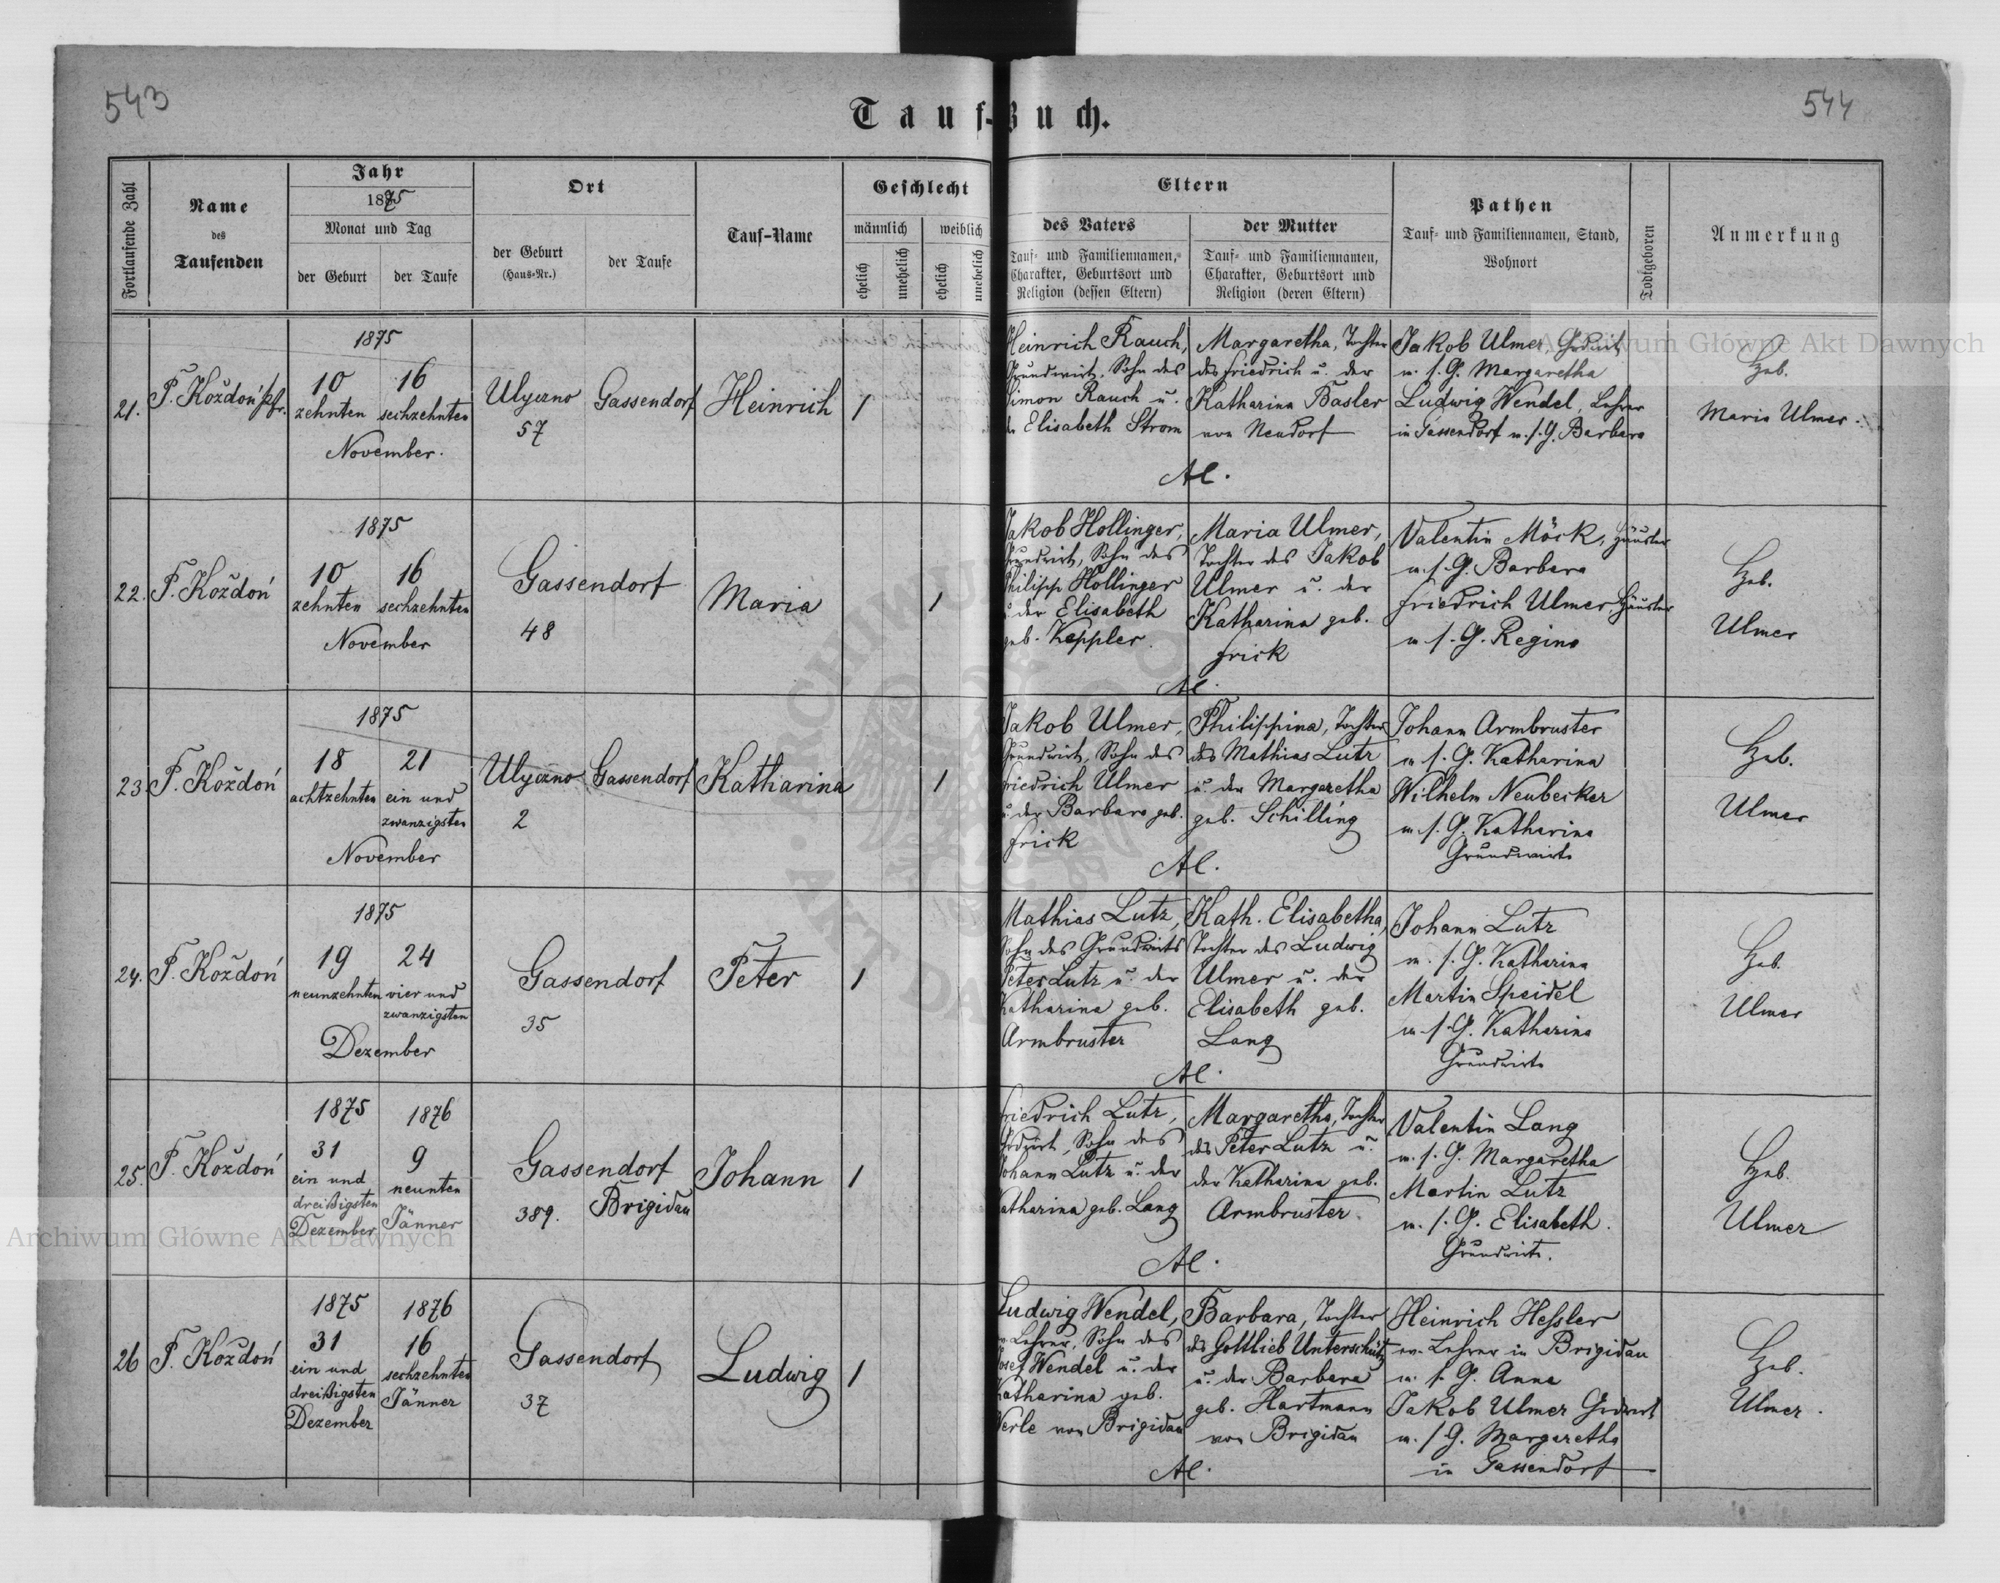 543
544
Tauf-Buch.
Fortlaufende Zahl
Name
des
Taufenden
Jahr
1875
Monat und Tag
der Geburt
der Taufe
Ort
der Geburt
(Haus-Nr.)
der Taufe
Tauf-Name
Geschlecht
männlich
weiblich
ehelich
unehelich
ehelich
unehelich
Eltern
des Vaters
Tauf- und Familiennamen,
Charakter, Geburtsort und
Religion (dessen Eltern)
der Mutter
Tauf- und Familiennamen,
Charakter, Geburtsort und
Religion (deren Eltern)
Pathen
Tauf- und Familiennamen, Stand,
Wohnort
Todtgeboren
Anmerkung
21.
P. Koždoń
1875
10
zehnten
16
sechzehnten
November.
Ulyczno
57
Gassendorf
Heinrich
1
Heinrich Rauch,
Grundwirt, Sohn des
Simon Rauch u.
der Elisabeth Strom
Margaretha, Tochter
des Friedrich u. der
Katharina Basler
von Neudorf
Al.
Jakob Ulmer,
u. s. G. Margaretha
Ludwig Wendel, Lehrer
in Gassendorf u. s. G. Barbara
Heb.
Maria Ulmer.
22.
P. Koždoń
1875
10
zehnten
16
sechzehnten
November
Gassendorf
48
Maria
1
Jakob Hollinger,
Grundwirt, Sohn des
Philipp Hollinger
u. der Elisabeth
geb. Keppler.
Maria Ulmer,
Tochter des Jakob
Ulmer u. der
Katharina geb.
Frick
Al.
Valentin Möck, Häusler
u. s. G. Barbara
Friedrich Ulmer, Häusler
u. s. G. Regina
Heb.
Ulmer
23.
P. Koždoń
1875
18
achtzehnten
21
ein und
zwanzigsten
November
Ulyczno
2
Gassendorf
Katharina
1
Jakob Ulmer,
Grundwirt, Sohn des
Friedrich Ulmer
u. der Barbara geb.
Frick
Philippina, Tochter
des Mathias Lutz
u. der Margaretha
geb. Schilling
Al.
Johann Armbruster
u. s. G. Katharina
Wilhelm Neubecker
u. s. G. Katharina
Grundwirte
Heb.
Ulmer
24.
P. Koždoń
1875
19
neunzehnten
24
vier und
zwanzigsten
Dezember
Gassendorf
35
Peter
1
Mathias Lutz,
Sohn des Grundwirts
Peter Lutz u. der
Katharina geb.
Armbruster
Kath. Elisabetha,
Tochter des Ludwig
Ulmer u. der
Elisabeth geb.
Lang
Al.
Johann Lutz
u. s. G. Katharina
Martin Speidel
u. s. G. Katharina
Grundwirte
Heb.
Ulmer
25.
P. Koždoń
1875
31
ein und
dreißigsten
Dezember
1876
9
neunten
Jänner
Gassendorf
389.
Brigidau
Johann
1
Friedrich Lutz,
Sohn des
Johann Lutz u. der
Katharina geb. Lang
Margaretha, Tochter
des Peter Lutz u.
der Katharina geb.
Armbruster.
Al.
Valentin Lang
u. s. G. Margaretha
Martin Lutz
u. s. G. Elisabeth.
Grundwirte.
Heb.
Ulmer
26
P. Koždoń
1875
31
ein und
dreißigsten
Dezember
1876
16
sechzehnten
Jänner
Gassendorf
37
Ludwig
1
Ludwig Wendel,
ev. Lehrer, Sohn des
Josef Wendel u. der
Katharina geb.
Werle von Brigidau
Barbara, Tochter
des Gottlieb Unterschütz
u. der Barbara
geb. Hartmann
von Brigidau
Al.
Heinrich Hessler
ev. Lehrer in Brigidau
u. s. G. Anna
Jakob Ulmer
u. s. G. Margaretha
in Gassendorf
Heb.
Ulmer.
Archiwum Główne Akt Dawnych
Archiwum Główne Akt Dawnych